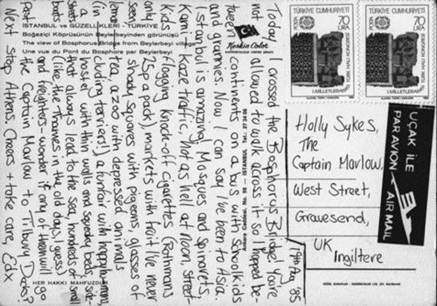 İSTANBUL ve GÜZELLİKLERİ - TÜRKİYE
Boğaziçi Köprüsünün Beylerbeyinden görünüşü
The view of Bosphorus Bridge from Beylerbeyi
Une vue du Pont du Bosphore par Beylerbeyi
Keskin Color
Today I crossed the Bosphorus Bridge! You're
not allowed to walk across it so I hopped be-
tween continents on a bus with schoolkids
and grannies. Now I can say I've been to Asia.
Istanbul is amazing! Mosques and spinarets,
Kami-kaze traffic, hot as hell at noon, street
kids flogging knock-off cigarettes (Rothmans
only 25p a pack), markets with fruit I've never
seen, shady squares with pigeons, glasses of
tea, a zoo with depressed animals
(including terriers!), a funfair with happy humans,
hostel with thin walls and squeaky beds,
that always lead to the sea, hundreds of small
boats (like the Thames in the old days, I guess)
and freighters. Wonder if any of them will go
past the Captain Marlow to Tilbury Docks?
Next stop Athens. Cheers + take care, Ed x
HER HAKKI MAHFUZDUR
TÜRKİYE CUMHURİYETİ
70 LİRA
TÜRKİYE CUMHURİYETİ
70 LİRA
UÇAK İLE
PAR AVION
AIR MAIL
Holly Sykes,
The
Captain Marlow,
West Street,
Gravesend,
UK
İngiltere